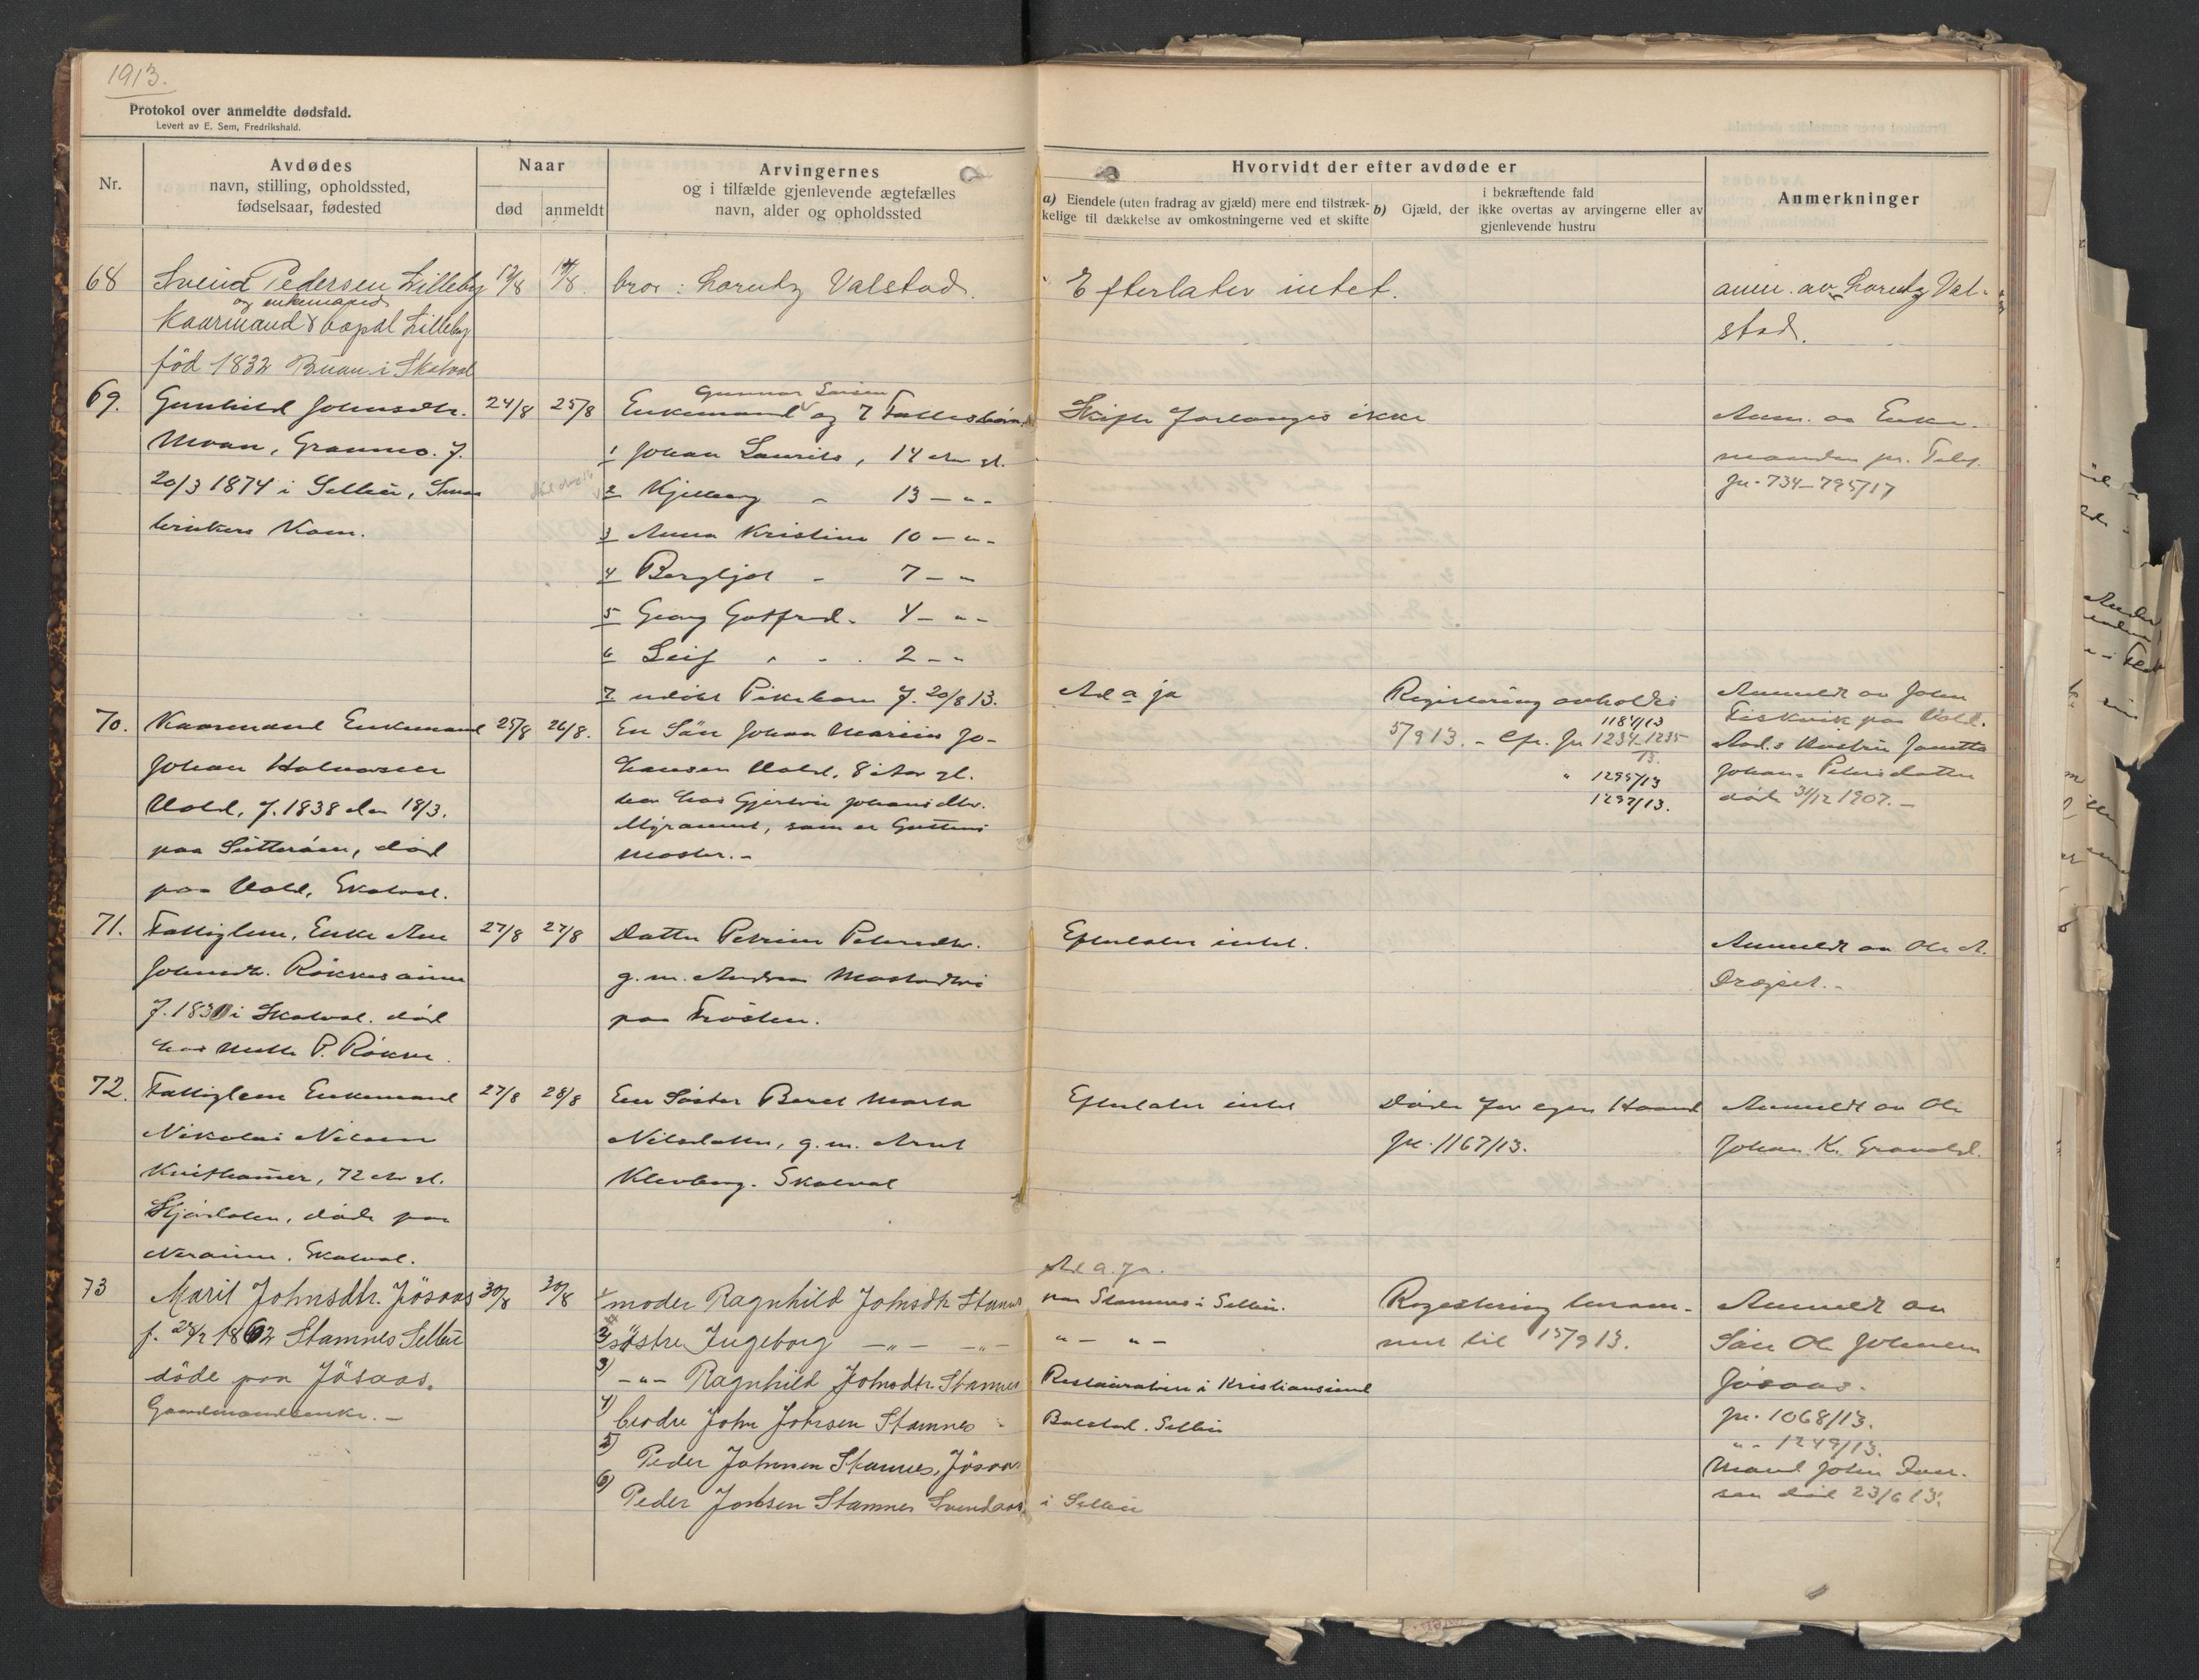 1913.
Protokol over anmeldte dødsfald.
Levert av E. Sem, Fredrikshald.
Nr.
Avdødes
navn, stilling, opholdssted,
fødselsaar, fødested
Naar
død
anmeldt
Arvingernes
og i tilfælde gjenlevende ægtefælles
navn, alder og opholdssted
Hvorvidt der efter avdøde er
a) Eiendele (uten fradrag av gjæld) mere end tilstræk-
kelige til dækkelse av omkostningerne ved et skifte
b) Gjæld, der
i bekræftende fald
ikke overtas av arvingerne eller av
gjenlevende hustru
Anmerkninger
68
Svend Pedersen Lilleby
og enkemand
Kaarmand
Lilleby
föd 1832 Buan i Skatval
12/8
14/8
bror: Lorentz Valstad.
Efterlater intet.
anm. av Lorentz Val-
stad.
69.
Gunhild Johnsdtr.
Moan, Granmo. f.
20/3 1874 i Selbu,
Kom.
24/8
25/8
Gunnar Larsen
Enkemand og 7 Fællesbörn
1 Johan Laurits, 14 aar gl.
2 Kjellaug " 13 - " -
3 Anna Kristine 10 - " -
4 Bergljot - 7 - "
5 Georg Gotfred - 4 - " -
6 Leif " - . 2 - "
7 udöbt Pikebarn f. 20/8 13.
Skifte forlanges ikke
Anm. av Enke-
manden pr. Telef.
Jr. 734-795/17
70.
Kaarmand Enkemand
Johan Halvorsen
Vold, f. 1838 den 18/3.
paa Sætteröen, död
paa Vold, Skatval.
25/8
26/8.
En Sön Johan Marius Jo-
hansen Vold, 8 Aar gl.
hos Gjertrü Johansdtr.
som er Guttens
Moster. -
Ad a ja
Registrering avholdt
1184/13
5/9 13. - Cfr. Jr 1234-1235
13.
" 1295/13
1297/13.
Anmeldt av John
Fiskvik paa Vold.
Avd.s Hustru Janetta
Johan. Petersdatter
död 31/12 1907. -
71.
Fattiglem, Enke Ane
Johnsdtr.
f. 1830 i Skatval. död
hos
27/8
27/8
Datter Petrine Petersdtr.
g.m. Andreas
paa Frosten.
Efterlater intet.
Anmeldt av Ole A.
Drogset. -
72.
Fattiglem Enkemand
Nikolai Nilsen
72 aar gl.
Stjördalen, döde paa
Skatval.
27/8
28/8
En Söster Beret Marta
Nilsdatter, g.m. Arnt
Klevberg. Skatval
Efterlater intet
Döde for egen Haand
Jr. 1167/13.
Anmeldt av Ole
Johan K.
73
Marit Johnsdtr. Jösaas
f. 1862 Stamnes Selbu
döde paa Jösaas.
Gaardmandsenke. -
30/8
30/8
1) moder Ragnhild Johnsdtr Stamnes
2) söstre Ingeborg - " - - " -
3) - " - Ragnhild Johnsdtr. Stamnes
4) brodre John Johnsen Stamnes
5) Peder Johnsen Stamnes, Jösaas
6) Peder Johnsen Stamnes
Ad a. ja.
paa Stamnes i Selbu.
" - " -
Restauratrice i Kristiansund
Balstad. Selbu
i Selbu
Registrering beram-
met til 15/9 13.
Anmeldt av
Sön Ole Johnsen
Jösaas.
Jr. 1068/13.
" - 1249/13.
Mand John Iver-
sen död 23/6 13.